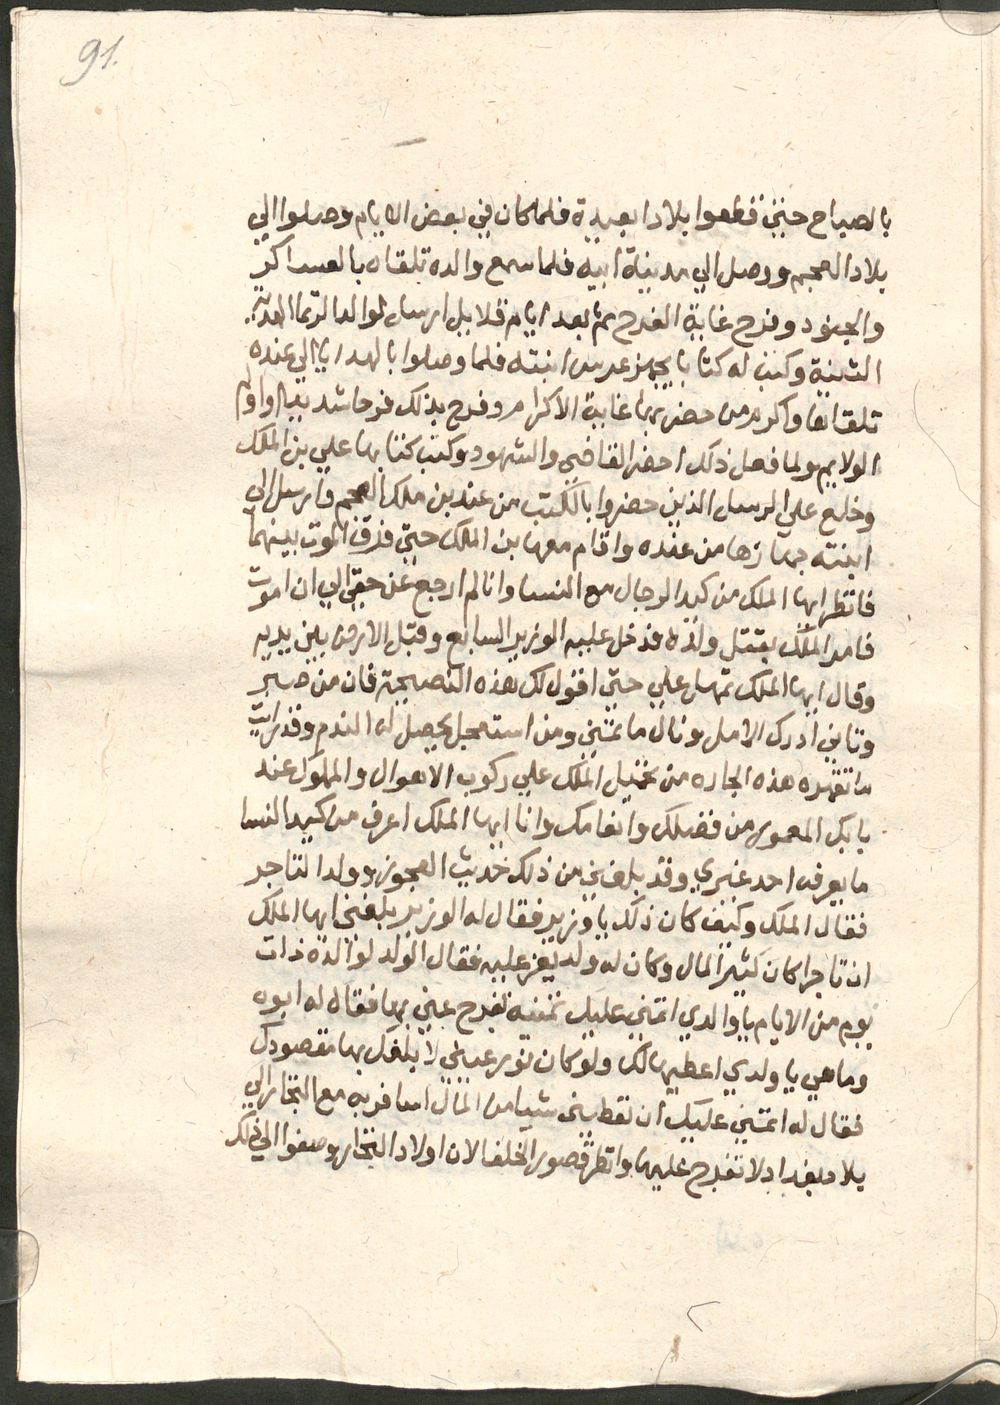 91.
بالصياح حتي قطعوا بلادا بعيدة فلما كان في بعض الايام وصلوا الي
بلاد العجم ووصل الي مدينة ابيه فلما سمع والده تلقاه بالعساكر
والجنود وفرح غاية الفرح ثم بعد ايام قلايل ارسل لوالد الدتما الهدية
الثمينة وكتب له كتابا يجهز عرس ابنته فلما وصلوا بالهدايا الي عنده
تلقاها واكرم من حضر بها غاية الاكرام وفرح بذلك فرحا شديدا واولم
الولايم ولما فعل ذلك احضر القاضي والشهود وكتب كتابها علي بن الملك
وخلع علي الرسل الذين حضروا بالكتب من عند بن ملك العجم وارسل الي
ابنته جهازها من عنده واقام معها بن الملك حتي فرق الموت بينهما
فانظر ايها الملك من كيد الرجال مع النسا وانا لم ارجع عن حقي الي ان اموت
فامر الملك بقتل ولده فدخل عليه الوزير السابع وقبل الارض بين يديه
وقال ايها الملك تمهل علي حتي اقول لك هذه النصيحة فان من صبر
وتاني ادرك الامل ونال ما تمني ومن استعجل يحصل له الندم وقد رايت
ما تقهره هذه الجاره من تخيل الملك علي ركوب الاهوال والمملوك عند
بابك المعمور من فضلك وانعامك وانا ايها الملك اعرف من كيد النسا
ما يعرفه احد غيري وقد بلغني من ذلك حديث العجوز وولد التاجر
فقال الملك وكيف كان ذلك يا وزير فقال له الوزير بلغني ايها الملك
ان تاجرا كان كثير المال وكان له ولد يعز عليه فقال الولد لوالده ذات
يوم من الايام يا والدي اتمني عليك تمنيه تفرح عني بها فقال له ابوه
وما هي يا ولدي اعطيها لك ولو كان نور عيني لا بلغك بها مقصودك
فقال له اتمني عليك ان تعطيني شيا من المال اسافر به مع التجار الي
بلاد بغداد لاتفرج عليها وانظر قصور الخلفا لان اولاد التجار وصفوا الي ذلك